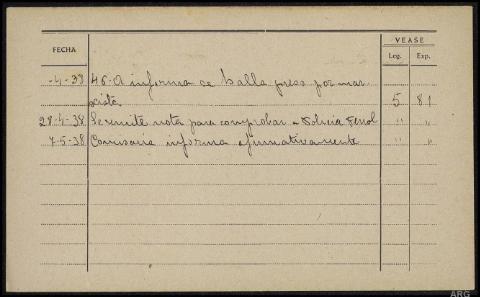 VEASE
FECHA Leg. Exp.
-4-38 46-A informa se halla preso por mar
xista. 5 81
28-4-38 Se remite nota para comprobar a Policia Ferrol " "
7-5-38 Comisaria informa afirmativamente " "
ARG